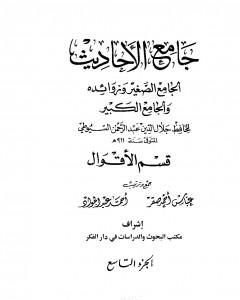 جامع الأحاديث
الجامع الصغير وزوائده
والجامع الكبير
للحافظ جلال الدين عبد الرحمن السيوطي
المتوفى سنة ٩١١ هـ
قسم الأقوال
جمع وترتيب
عباس أحمد صقر أحمد عبد الجواد
إشراف
مكتب البحوث والدراسات في دار الفكر
الجزء التاسع